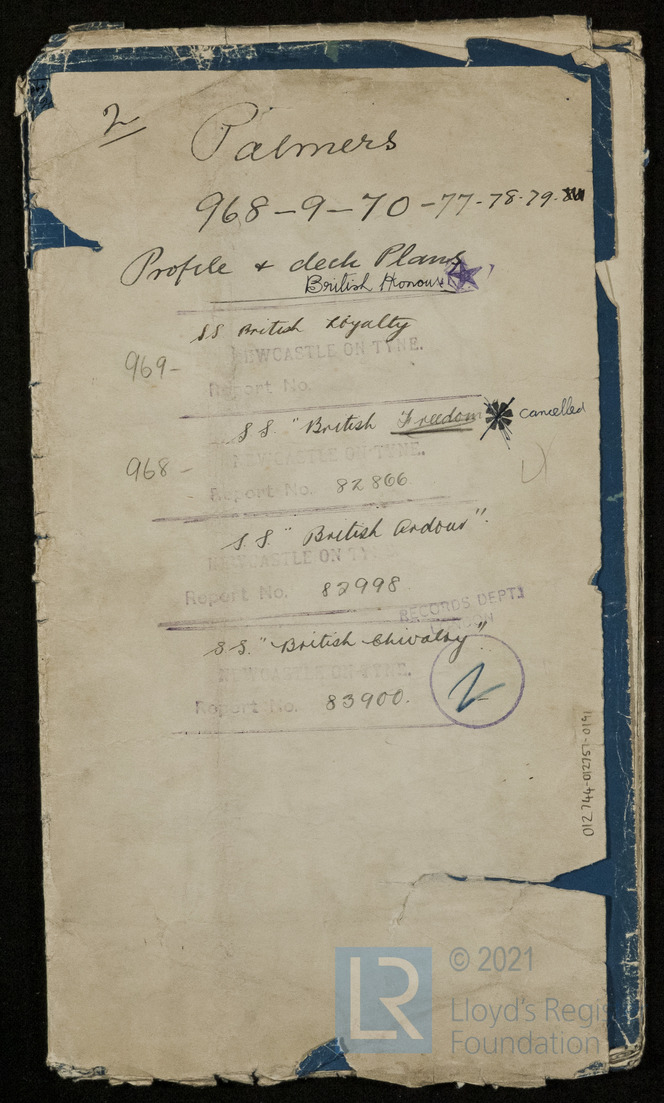 2
Palmers
968-9-70-77-78-79.
Profile & deck Plans
British Honour
SS British Loyalty
969-
NEWCASTLE ON TYNE.
Report No.
S.S. "British Freedom
cancelled
968-
NEWCASTLE ON TYNE.
Report No. 82866
S.S. "British Ardour".
NEWCASTLE ON TYNE.
Report No. 82998
RECORDS DEPT.
LONDON
S.S. "British Chivalry"
NEWCASTLE ON TYNE.
Report No. 83900.
2
012744-012757-0191
LR
© 2021
Lloyd's Regis
Foundation